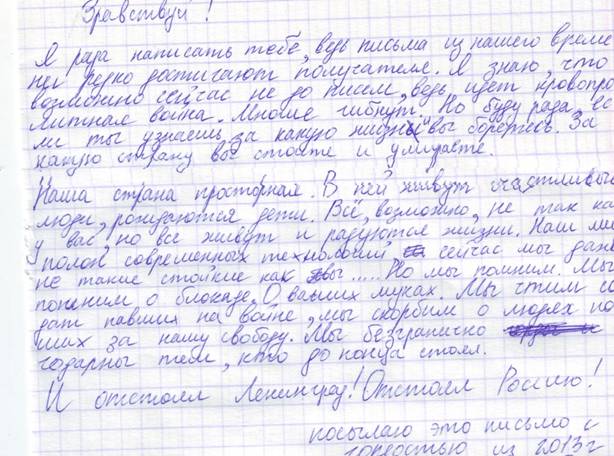 Здравствуй!
Я рада написать тебе, ведь письма из нашего време
ни редко достигают получателя. Я знаю, что
возможно сейчас не до писем, ведь идет кровопро
литная война. Многие гибнут. Но буду рада, ес
ли ты узнаешь за какую жизнь вы боретесь. За
какую страну вы стоите и умираете.
Наша страна просторная. В ней живут счастливы
люди, рождаются дети. Всё, возможно, не так ка
у вас, но все живут и радуются жизни. Наш ми
полон современных технологий, сейчас мы даже
не такие стойкие как вы..... Но мы помним. Мы
помним о блокаде. О ваших муках. Мы чтим со
дат павших на войне, мы скорбим о людях по
ших за нашу свободу. Мы безгранично
годарны тем, кто до конца стоял.
И отстоял Ленинград! Отстоял Россию!
посылаю это письмо с
гордостью из 2013г